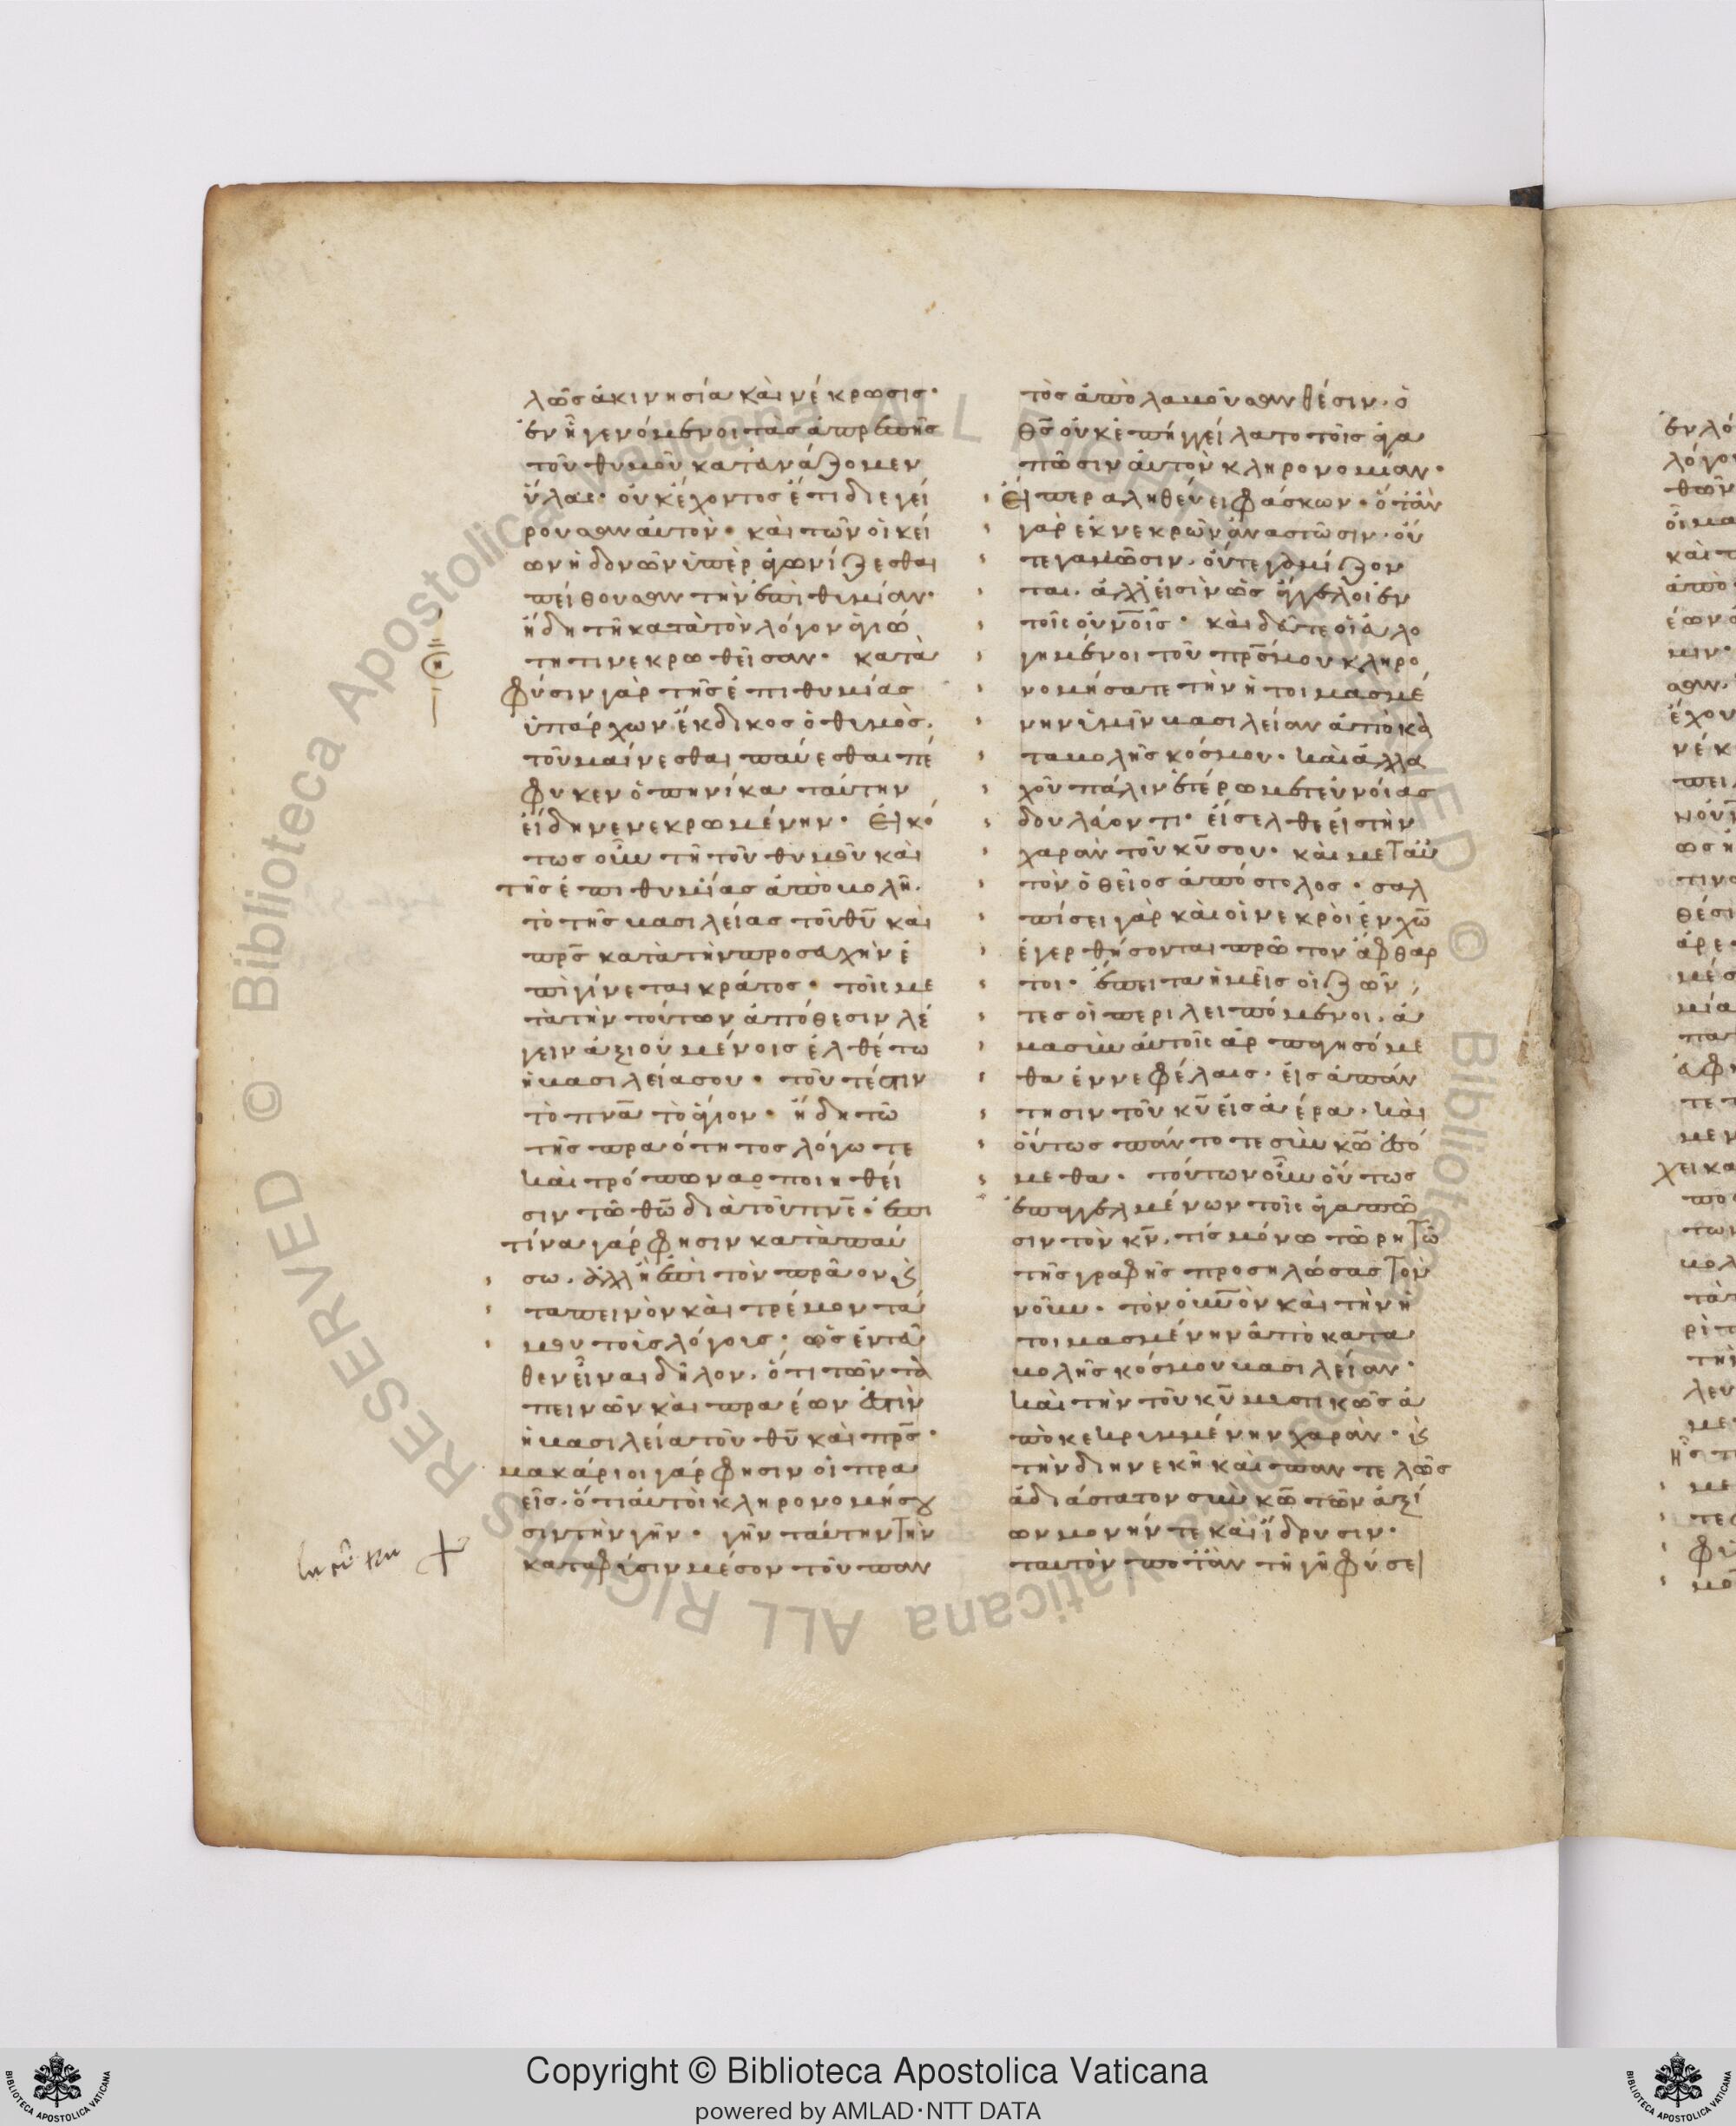 λῶς ἀκινησία καὶ νέκρωσις·
ἐν ἧ γενόμενοι τὰς ἀπρεπεῖς
τοῦ θυμοῦ κατανάζομεν
ὕλας· οὐκ ἔχοντος ἔτι διεγεί
ρουσαν ἀυτὸν· καὶ τῶν οἰκεί
ων ἡδονῶν ὑπὲρ ἀγωνίζεσθαι
πείθουσαν τὴν ἐπιθυμίαν·
ἤδη τῆ κατὰ τὸν λόγον ἁγιό
τητι νεκρωθεῖσαν· κατὰ
φύσιν γὰρ τῆς ἐπιθυμίας
ὑπάρχων ἔκδικος ὁ θυμὸς,
τοῦ μαίνεσθαι παύεσθαι πέ
φυκεν ὁπηνίκα ταύτην
εἴδη νενεκρωμένην· Εἰκό
τως οὖν τῆ τοῦ θυμοῦ καὶ
τῆς ἐπιθυμίας ἀποβολῆ.
τὸ τῆς βασιλείας τοῦ θυ καὶ
πρς κατὰ τὴν προσευχὴν ἐ
πιγίνεται κράτος· τοῖς με
τὰ τὴν τούτων ἀπόθεσιν λέ
γειν ἀξιουμένοις ἐλθέτω
ἡ βασιλεία σου· τουτέστιν
τὸ πνα τὸ ἅγιον· ἤδη τῶ
τῆς πραότητος λόγω τε
καὶ τρόπω ναοποιηθεί
σιν τῶ θῶ διὰ τοῦ πνς· ἐπὶ
τίνα γάρ φησιν καταπαύ
σω· ἀλλ' ἢ ἐπὶ τὸν πρᾶον καὶ
ταπεινὸν καὶ τρέμοντά
μου τοὺς λόγους· ὡς ἐντεῦ
θεν εἶναι δῆλον, ὅτι τῶν τα
πεινῶν καὶ πραέων ἐστὶν
ἡ βασιλεία τοῦ θυ καὶ πρς·
μακάριοι γάρ φησιν οἱ πρα
εῖς· ὅτι ἀυτοὶ κληρονομήσου
σιν τὴν γῆν· γῆν ταύτην τὴν
κατὰ φύσιν μέσον τοῦ παν
τὸς ἀπολαβοῦσαν θέσιν· ὁ
θς οὐκ ἐπηγγείλατο τοῖς ἀγα
πῶσιν ἀυτὸν κληρονομίαν·
Εἴπερ ἀληθεύει φάσκων· ὅταν
γὰρ ἐκ νεκρῶν ἀναστῶσιν· οὔ
τε γαμῶσιν· οὔτε γαμίζον
ται· ἀλλ' εἰσὶν ὡς ἄγγελοι ἐν
τοῖς οὐνοῖς· καὶ δεῦτε οἱ ἐυλο
γημένοι τοῦ πρς μου κληρο
νομήσατε τὴν ἡτοιμασμέ
νην ὑμῖν βασιλείαν ἀπὸ κα
ταβολῆς κόσμου· καὶ ἀλλα
χοῦ πάλιν ἑτέρω μετ' ευνοίας
δουλεύοντι· εἴσελθε εἰς τὴν
χαρὰν τοῦ κυ σου· καὶ μετ' αὐ
τὸν ὁ θεῖος ἀπόστολος· σαλ
πίσει γὰρ καὶ οἱ νεκροὶ ἐν χω
ἐγερθήσονται πρῶτον ἄφθαρ
τοι· ἔπειτα ἡμεῖς οἱ ζῶν
τες οἱ περιλειπόμενοι, ἅ
μα σὺν ἀυτοῖς ἁρπαγησόμε
θα ἐν νεφέλαις· εἰς ἀπάν
τησιν τοῦ κυ εἰς ἀέρα· καὶ
οὕτως πάντοτε σὺν κω ἐσό
μεθα· τούτων οὖν οὕτως
ἐπηγγελμένων τοῖς ἀγαπῶ
σιν τὸν κν, τίς μόνω τῶ ρητῶ
τῆς γραφῆς προσηλώσας τὸν
νοῦν· τὸν οὐνὸν καὶ τὴν ἡ
τοιμασμένην ἀπὸ κατα
βολῆς κόσμου βασιλείαν·
καὶ τὴν τοῦ κυ μυστικῶς ἀ
ποκεκριμμένην χαρὰν· καὶ
τὴν διηνεκῆ καὶ παντελῶς
ἀδιάστατον σὺν κω τῶν ἀξί
ων μονήν τε καὶ ἵδρυσιν·
ταυτὸν ποτ' ἂν τῆ γῆ φύσει